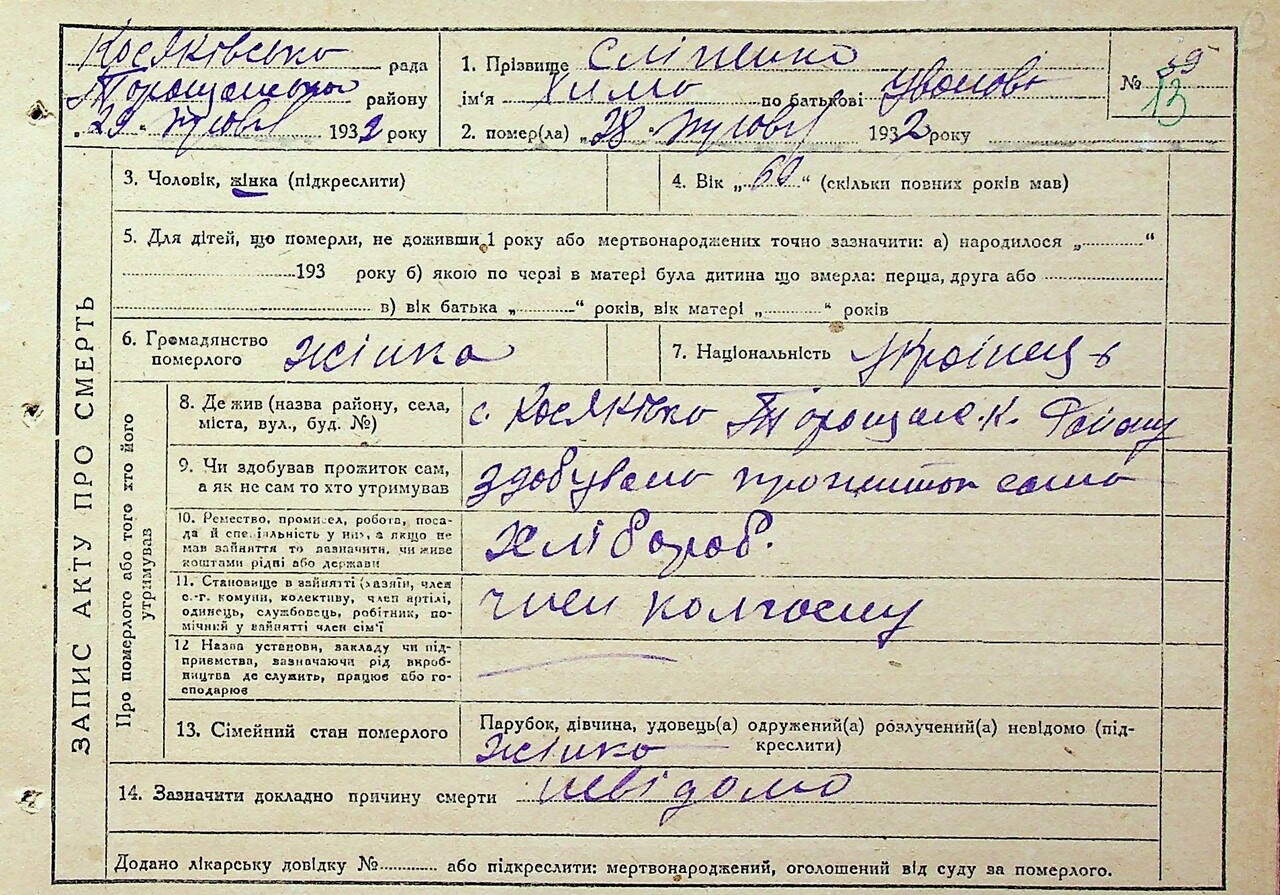 Косяківсько рада
Торощанського району
„29“ 1932 року
1. Прізвище Сліпенко
ім'я Хима по батькові
№ 59
13
2. помер(ла) „28“ 1932 року
ЗАПИС АКТУ ПРО СМЕРТЬ
3. Чоловік, жінка (підкреслити)
4. Вік „60“ (скільки повних років мав)
5. Для дітей, що померли, не доживши 1 року або мертвонароджених точно зазначити: а) народилося „..........“
193 року б) якою по черзі в матері була дитина що вмерла: перша, друга або
в) вік батька „..........“ років, вік матері „..........“ років
6. Громадянство
померлого жінка
7. Національність Українець
Про померлого або того хто його
утримував
8. Де жив (назва району, села,
міста, вул., буд. №) с. Косяківко Торощанс.к. Району
9. Чи здобував прожиток сам,
а як не сам то хто утримував здобувало прожиток само
10. Ремество, промисел, робота, поса-
да й спеціальність у них, а якщо не
мав зайняття то зазначити, чи живе
коштами рідні або держави
хлібороб.
11. Становище в зайнятті (хазяїн, член
с.-г. комуни, колективу, член артілі,
одинець, службовець, робітник, по-
мічний у зайнятті член сім'ї
член колгоспу
12 Назва установи, закладу чи під-
приємства, зазначаючи рід вироб-
ництва де служить, працює або го-
сподарює
13. Сімейний стан померлого
Парубок, дівчина, удовець(а) одружений(а) розлучений(а) невідомо (під-
креслити)
жінко
14. Зазначити докладно причину смерти невідомо
Додано лікарську довідку №.......... або підкреслити: мертвонароджений, оголошений від суду за померлого.